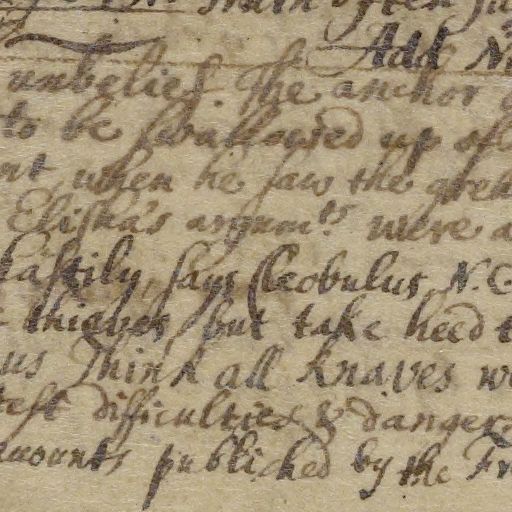 often
Add
unbelief. The anchor
to be swallowed up
when he saw the
Elisha's argumts. were
hastily, says Cleobulus, N. C
thieves, but take heed
us Think all knaves
difficulties & dangers
published by the